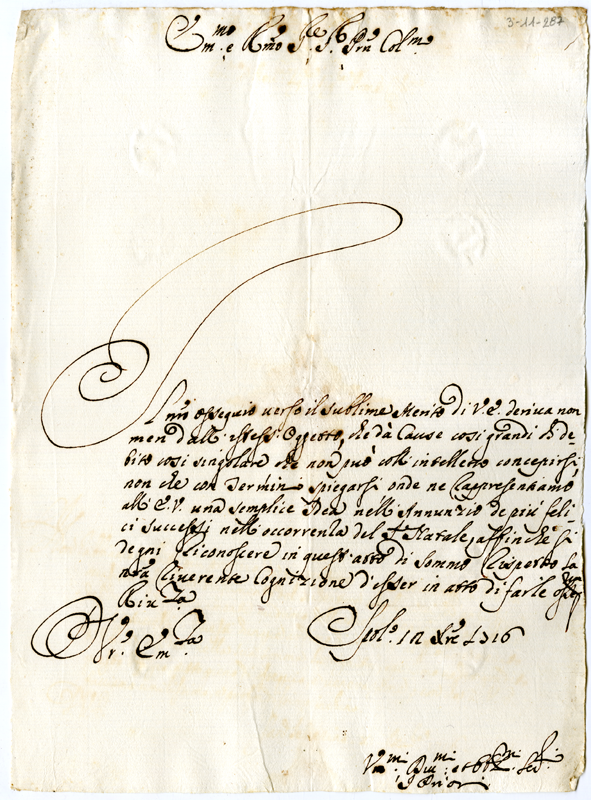 3-11-287
Em.mo e R.mo S.re S.r Prñ Col.mo
L'nrõ osseguio verso il sublime Merito di V.E. deriva non
men dall' istess. Oggetto, che dà Cause così grandi di de-
bito così singolare che non può coll intelletto concepirsi,
non che con Termini spiegarsi onde ne rappresentiamo
all' E.V. una semplice Idea nell' Annunzio de più feli-
ci successi nell' occorrenza del S. Natale, affinche si
degni riconoscere in quest' atto di sommo rispetto la
nrã riverente Cognizione d'esser in atto di farle
Riv.za
D. V.rã Em.za
12 Xbre 1716
et
Prior